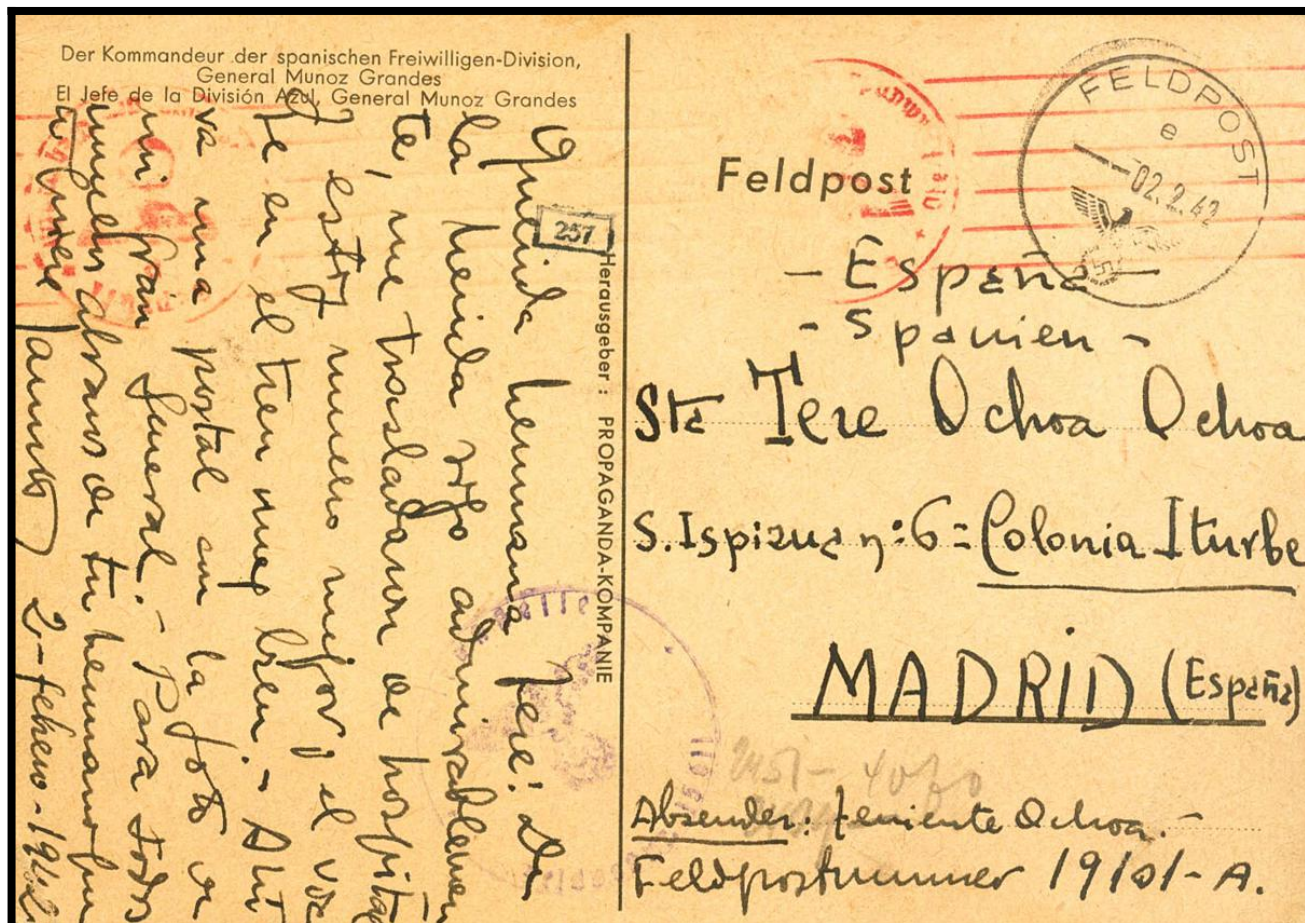 Der Kommandeur der spanischen Freiwilligen-Division,
General Munoz Grandes
El Jefe de la División Azul, General Munoz Grandes
Querida hermana Tere: De
la herida sigo admirablemen
te, me trasladaron de hospital
y estoy mucho mejor y el via
je en el tren muy bien. - Ahí
va una postal con la foto de
mi gran General. - Para todos
muchos abrazos de tu hermano que
te quiere
2-febrero-1942
257
Herausgeber: PROPAGANDA-KOMPANIE
FELDPOST
e
02.2.42
Feldpost
- España -
- Spanien -
Sta Tere Ochoa Ochoa
S. Ispizua nº 6 = Colonia Iturbe
MADRID (España)
Absender: teniente Ochoa. -
Feldpostnummer 19101-A.